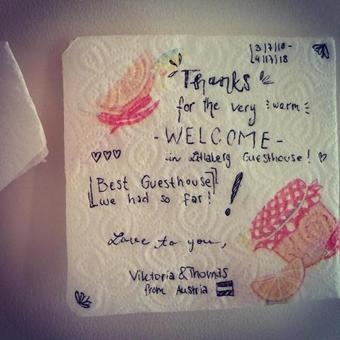 3/7/18-
4/7/18
Thanks
for the very warm
-WELCOME-
in Guesthouse!
Best Guesthouse
we had so far!
Love to you,
Viktoria & Thomas
from Austria